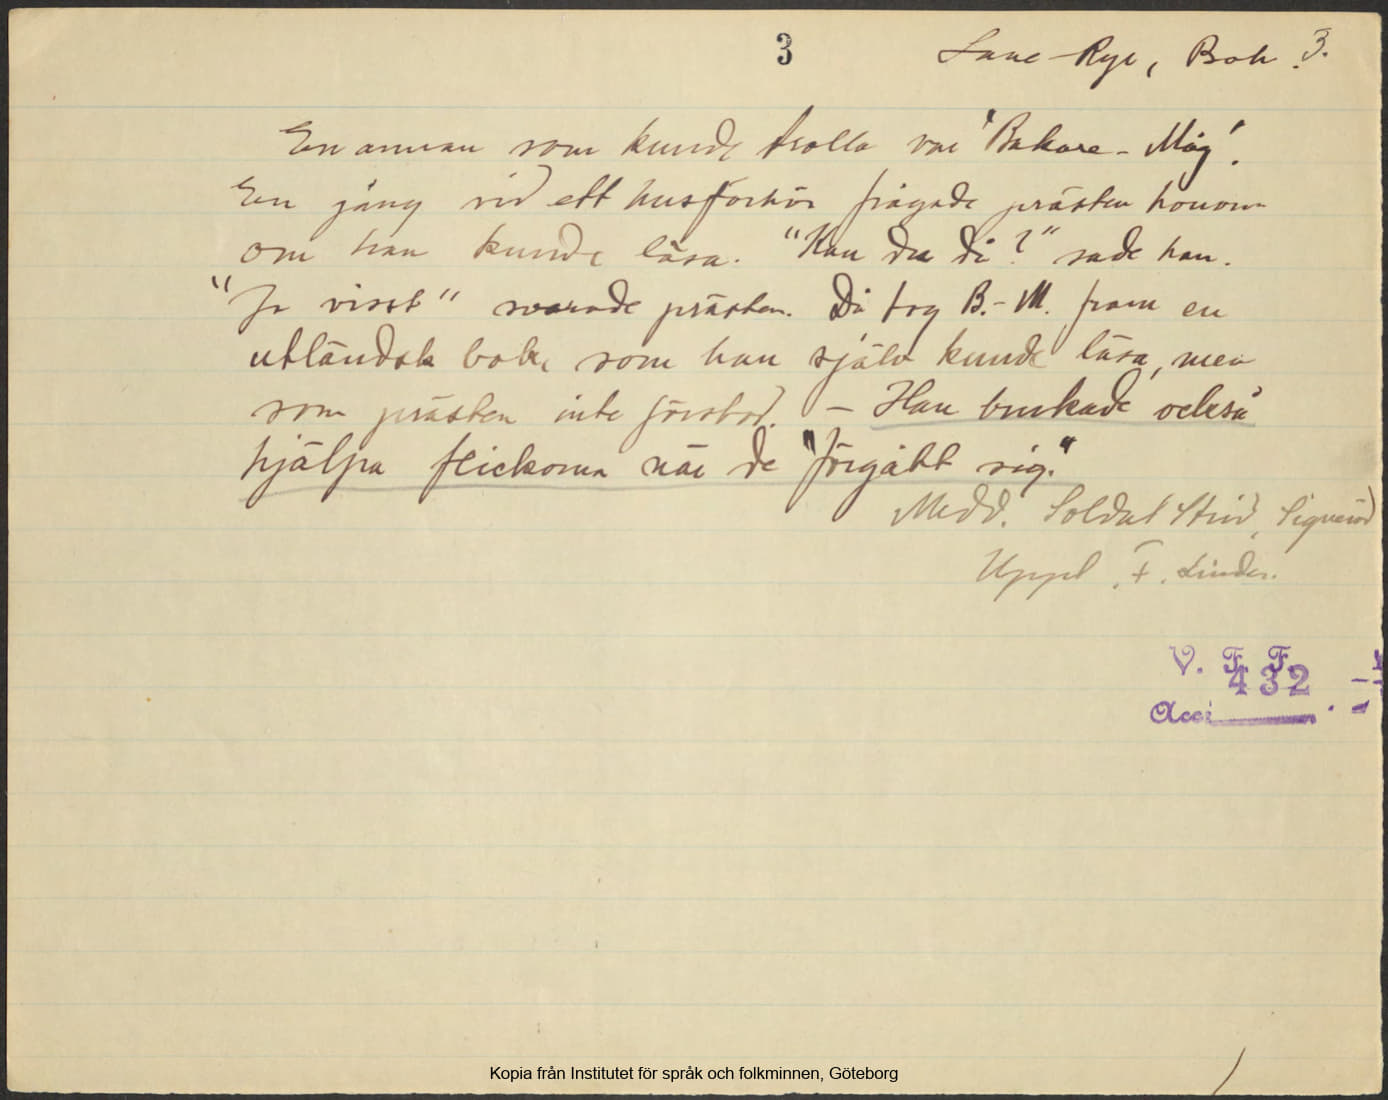 3
Lane-Rye, Boh. 3.
En annan som kunde trolla var "Bakare-Måg".
En gång vid ett husförhör frågade prästen honom
om han kunde läsa. "Kan du di?" sade han.
"Ja visst" svarade prästen. Då tog B.-M. fram en
utländsk bok, som han själv kunde läsa, men
som prästen inte förstod. – Han brukade också
hjälpa flickorna när de "förgått sig."
Medd. Soldat Strid,
Uppt. F. Linder.
V. F. F.
432
Acc:
Kopia från Institutet för språk och folkminnen, Göteborg